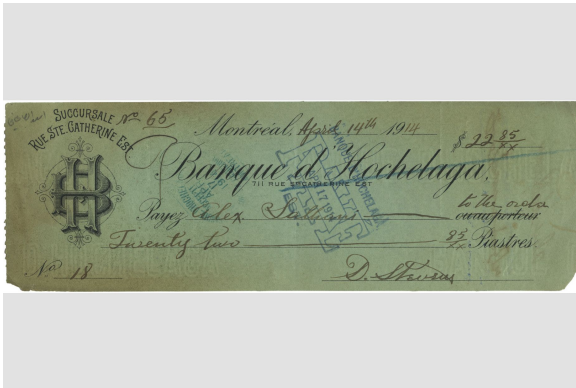 SUCCURSALE
RUE STE. CATHERINE EST
No. 65
Montréal, April 14th 1914
$ 22 85/xx
Banque d'Hochelaga,
711 RUE STE CATHERINE EST
Payez Alex to the order
ou au porteur
Twenty two 85/xx Piastres.
No 18
D. Stevens